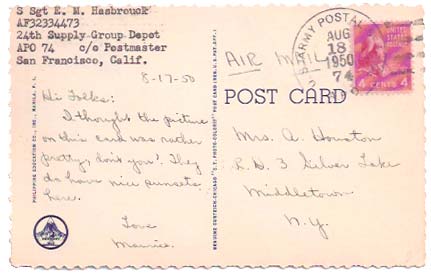 S Sgt E. M. Hasbrouck
AF32334473
24th Supply Group Depot
APO 74 c/o Postmaster
San Francisco, Calif.
8-17-50
Hi Folks:
I thought the picture
on this card was rather
pretty, don't you? They
do have nice sunsets
here.
Love
Maurice.
PHILIPPINE EDUCATION CO., INC., MANILA, P. I.
GENUINE CURTEICH-CHICAGO "C. T. PHOTO-COLORIT" POST CARD
AIR MAIL
ARMY POSTAL
AUG
18
1950
74
UNITED STATES
4 CENTS 4
POST CARD
Mrs. A. Houston
R.D. 3 Silver Lake
Middletown
N.Y.